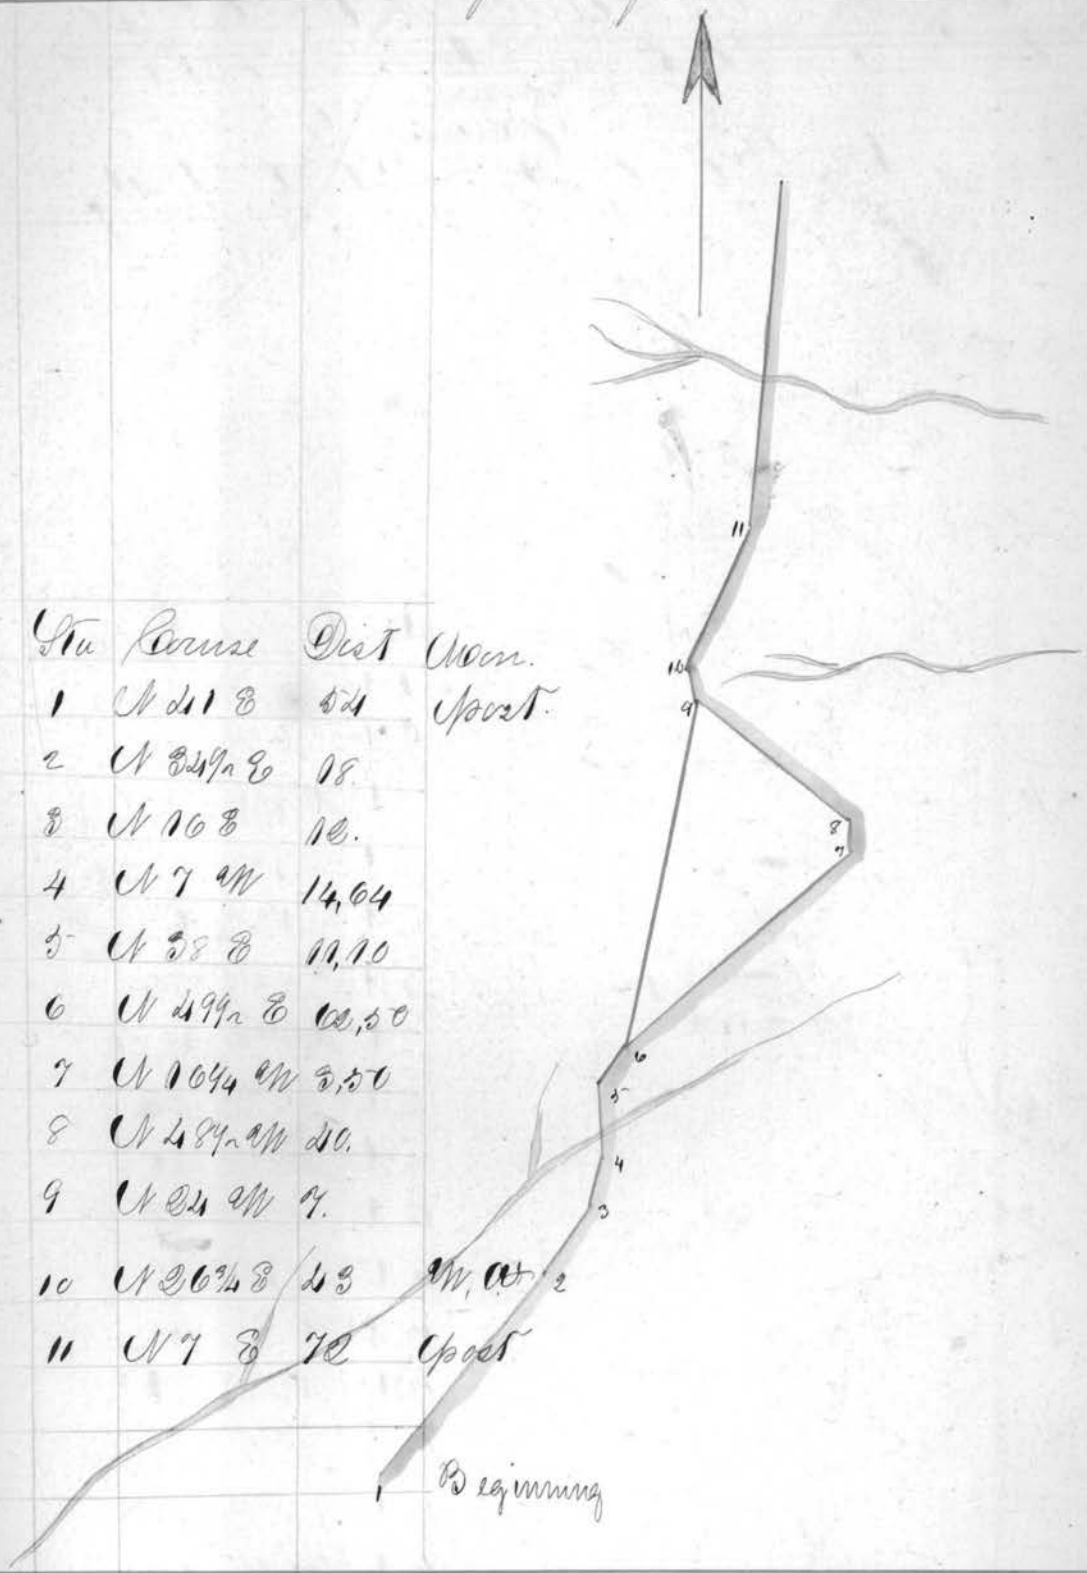 Sta Course Dist Mon.
1 N 41 E 54 post.
2 N 34½ E 18.
3 N 16 E 12.
4 N 7 W 14,64
5 N 38 E 11,10
6 N 49½ E 62,50
7 N 16¼ W 3,50
8 N 48½ W 40.
9 N 24 W 7.
10 N 26¾ E 43 W,
11 N 7 E 72 post
11
10
9
8
7
6
5
4
3
2
1
Beginning